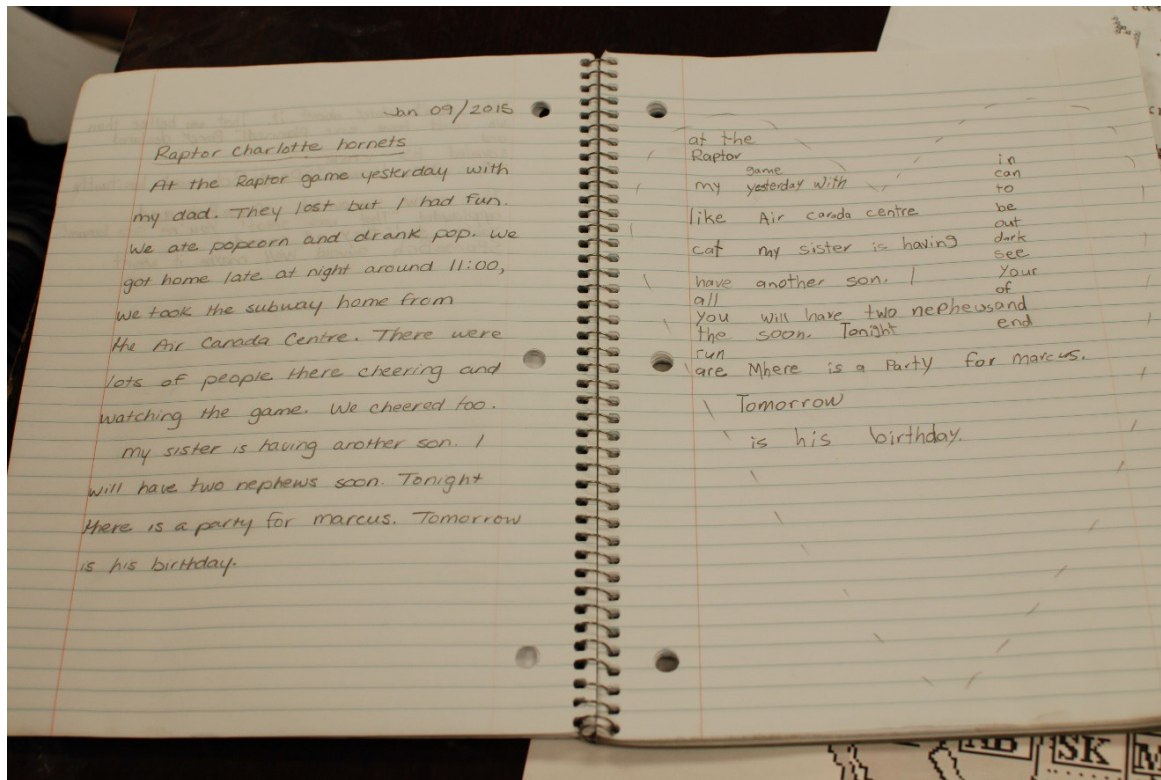 Jan 09/2015
Raptor Charlotte hornets
At the Raptor game yesterday with
my dad. They lost but I had fun.
we ate popcorn and drank pop. we
got home late at night around 11:00,
we took the subway home from
the Air Canada Centre. There were
lots of people there cheering and
watching the game. We cheered too.
my sister is having another son. I
will have two nephews soon. Tonight
there is a party for marcus. Tomorrow
is his birthday.
at the
Raptor
game
my yesterday with
like Air carada centre
cat my sister is having
have another son. I
all
you will have two nephews
the soon. Tonight
run
are Mhere is a Party for marcus.
Tomorrow
is his birthday.
in
can
to
be
out
dark
see
Your
of
and
end
AB SK M